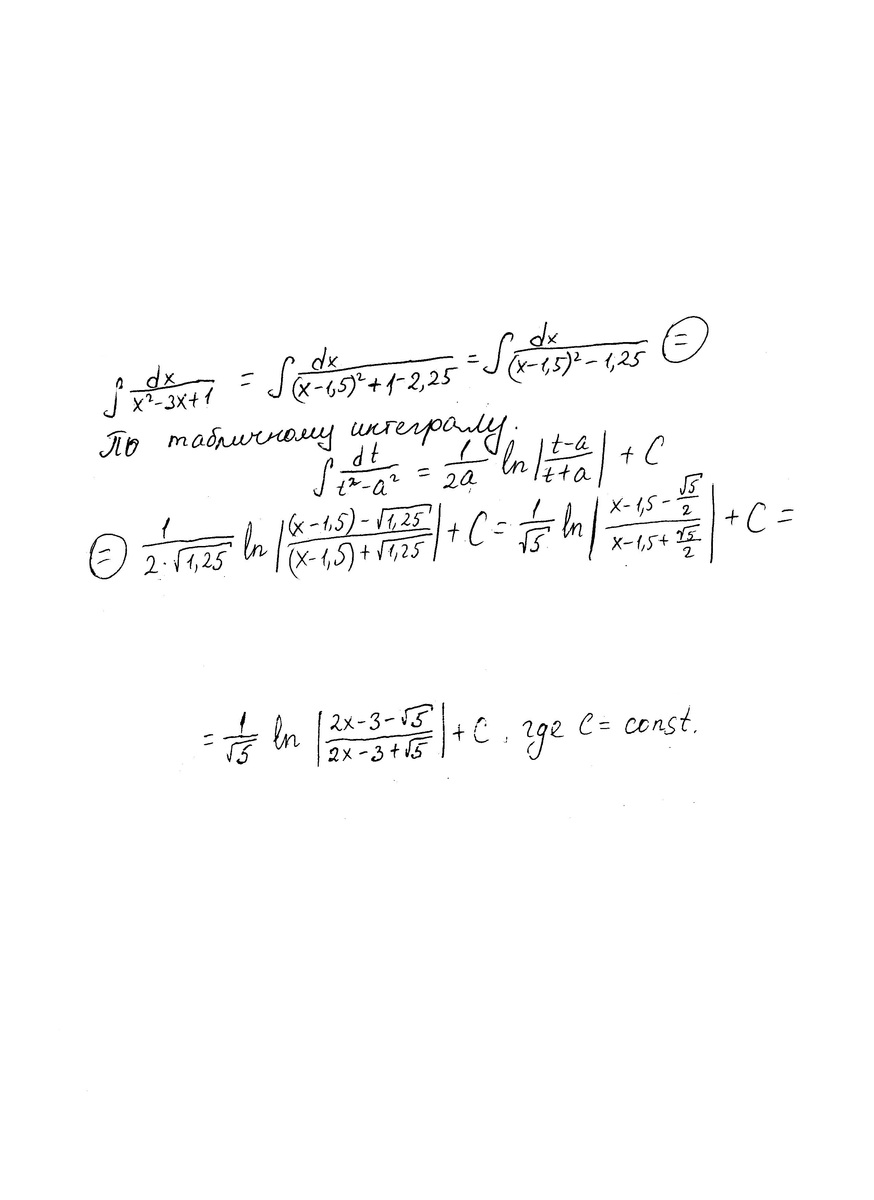 ∫ dx/(x²-3x+1) = ∫ dx/((x-1,5)²+1-2,25) = ∫ dx/((x-1,5)²-1,25) ⊜
По табличному интегралу.
∫ dt/(t²-a²) = 1/(2a) ln|(t-a)/(t+a)| + C
⊜ 1/(2·√1,25) ln|((x-1,5)-√1,25)/((x-1,5)+√1,25)| + C = 1/√5 ln|(x-1,5-√5/2)/(x-1,5+√5/2)| + C =
= 1/√5 ln|(2x-3-√5)/(2x-3+√5)| + C, где C = const.